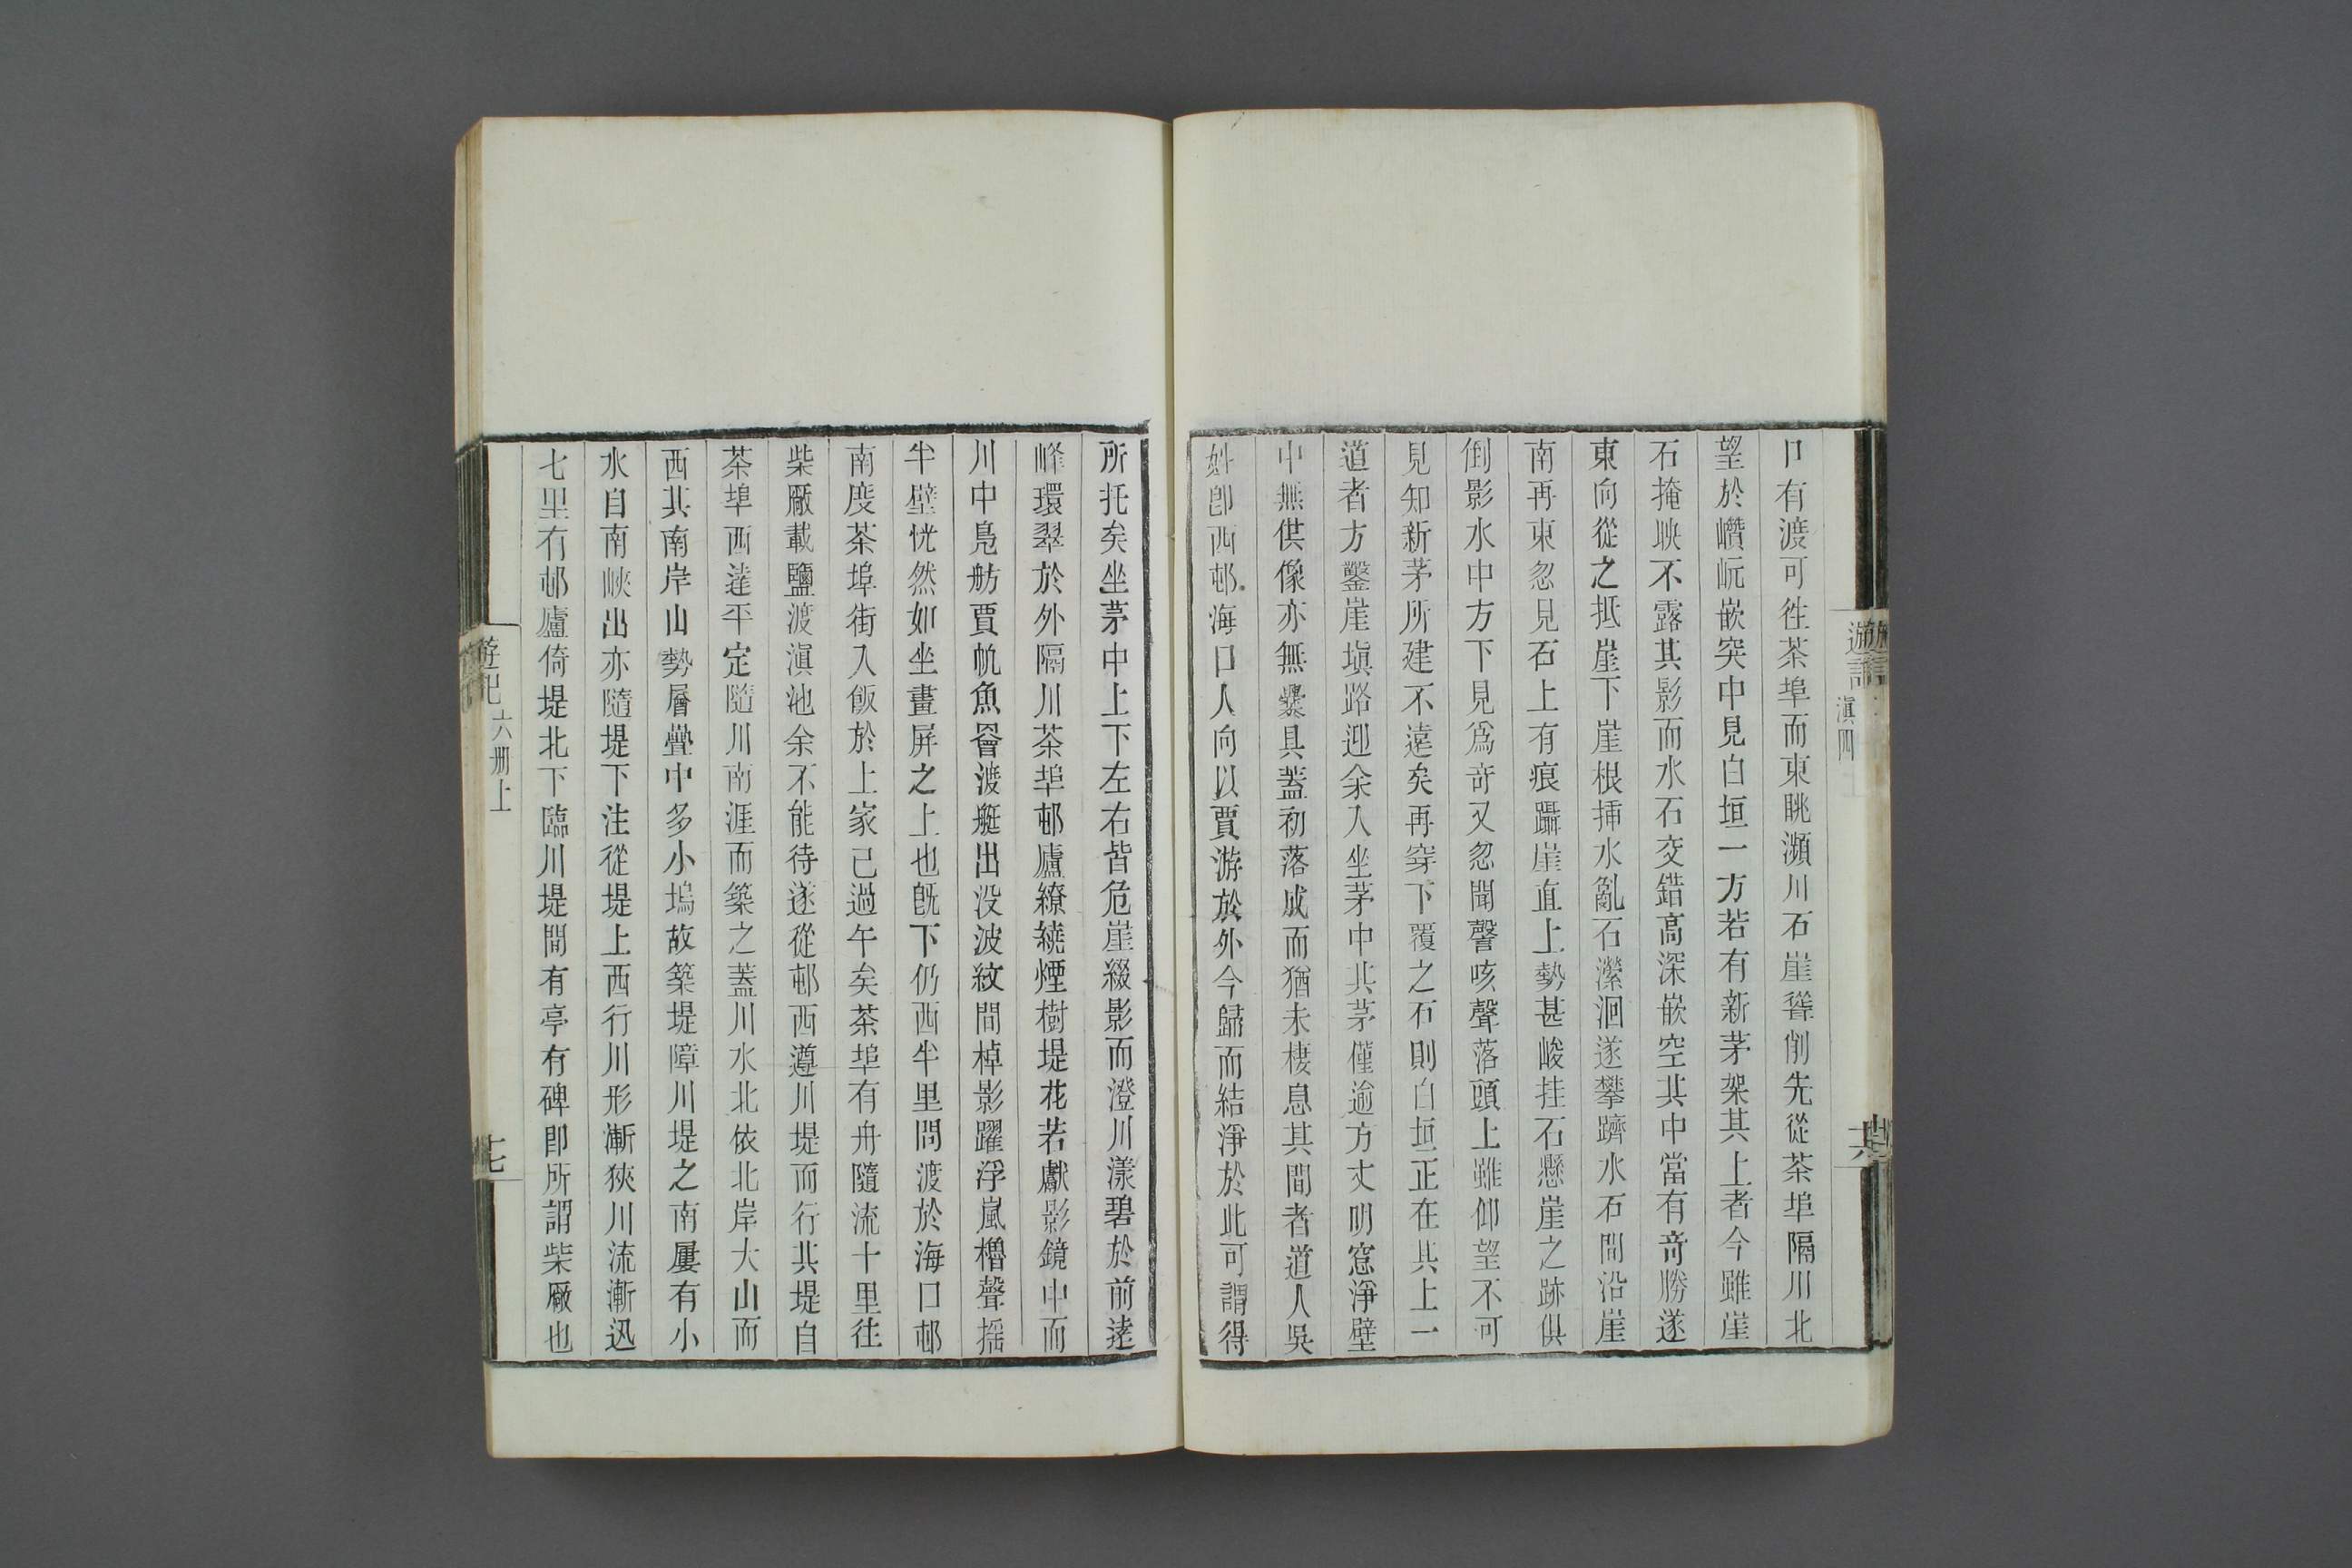 遊記
滇四
十六
口有渡可徃茶埠而東眺瀕川石崖聳削先從茶埠隔川北
望於巑岏嵌突中見白垣一方若有新茅架其上者今雖崖
石掩映不露其影而水石交錯高深嵌空其中當有竒勝遂
東向從之抵崖下崖根揷水亂石瀠洄遂攀躋水石間沿崖
南再東忽見石上有痕躡崖直上勢甚峻挂石懸崖之跡俱
倒影水中方下見爲竒又忽聞謦咳聲落頭上雖仰望不可
見知新茅所建不遠矣再穿下覆之石則白垣正在其上一
道者方鑿崖塡路迎余入坐茅中其茅僅逾方丈明窓淨壁
中無供像亦無爨具蓋初落成而猶未棲息其間者道人吳
姓卽西邨海口人向以賈游於外今歸而結淨於此可謂得
所托矣坐茅中上下左右皆危崖綴影而澄川漾碧於前逺
峰環翠於外隔川茶埠邨廬繚繞煙樹堤花若獻影鏡中而
川中鳧舫賈帆魚罾渡艇出没波紋間棹影躍浮嵐櫓聲揺
半壁恍然如坐畫屏之上也旣下仍西半里問渡於海口邨
南度茶埠街入飯於上家已過午矣茶埠有舟隨流十里徃
柴厰載鹽渡滇池余不能待遂從邨西遵川堤而行其堤自
茶埠西逹平定隨川南涯而築之蓋川水北依北岸大山而
西其南岸山勢層疊中多小塢故築堤障川堤之南屢有小
水自南峽出亦隨堤下注從堤上西行川形漸狹川流漸迅
七里有邨廬倚堤北下臨川堤間有亭有碑卽所謂柴厰也
遊記
六册上
十七